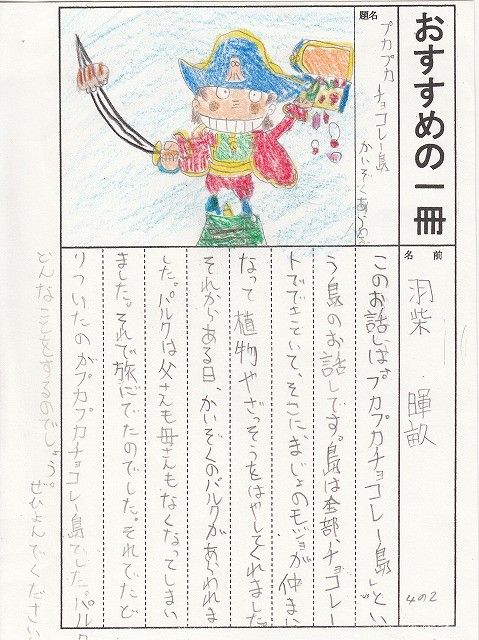 おすすめの一冊
題名
プカプカチョコレー島
かいぞくあらわる
名前
羽柴 暉畝
4の2
このお話しは「プカプカチョコレー島」とい
う島のお話しです。島は全部、チョコレー
トでできていて、そこに、まじょのモジョが仲まに
なって植物やざっそうをはやしてくれました。
それからある日、かいぞくのバルクがあらわれま
した。バルクは父さんも母さんもなくなってしまい
ました。それで旅にでたのでした。それでたど
りついたのがプカプカチョコレー島でした。バルク
どんなことをするのでしょう。
ぜひよんでください